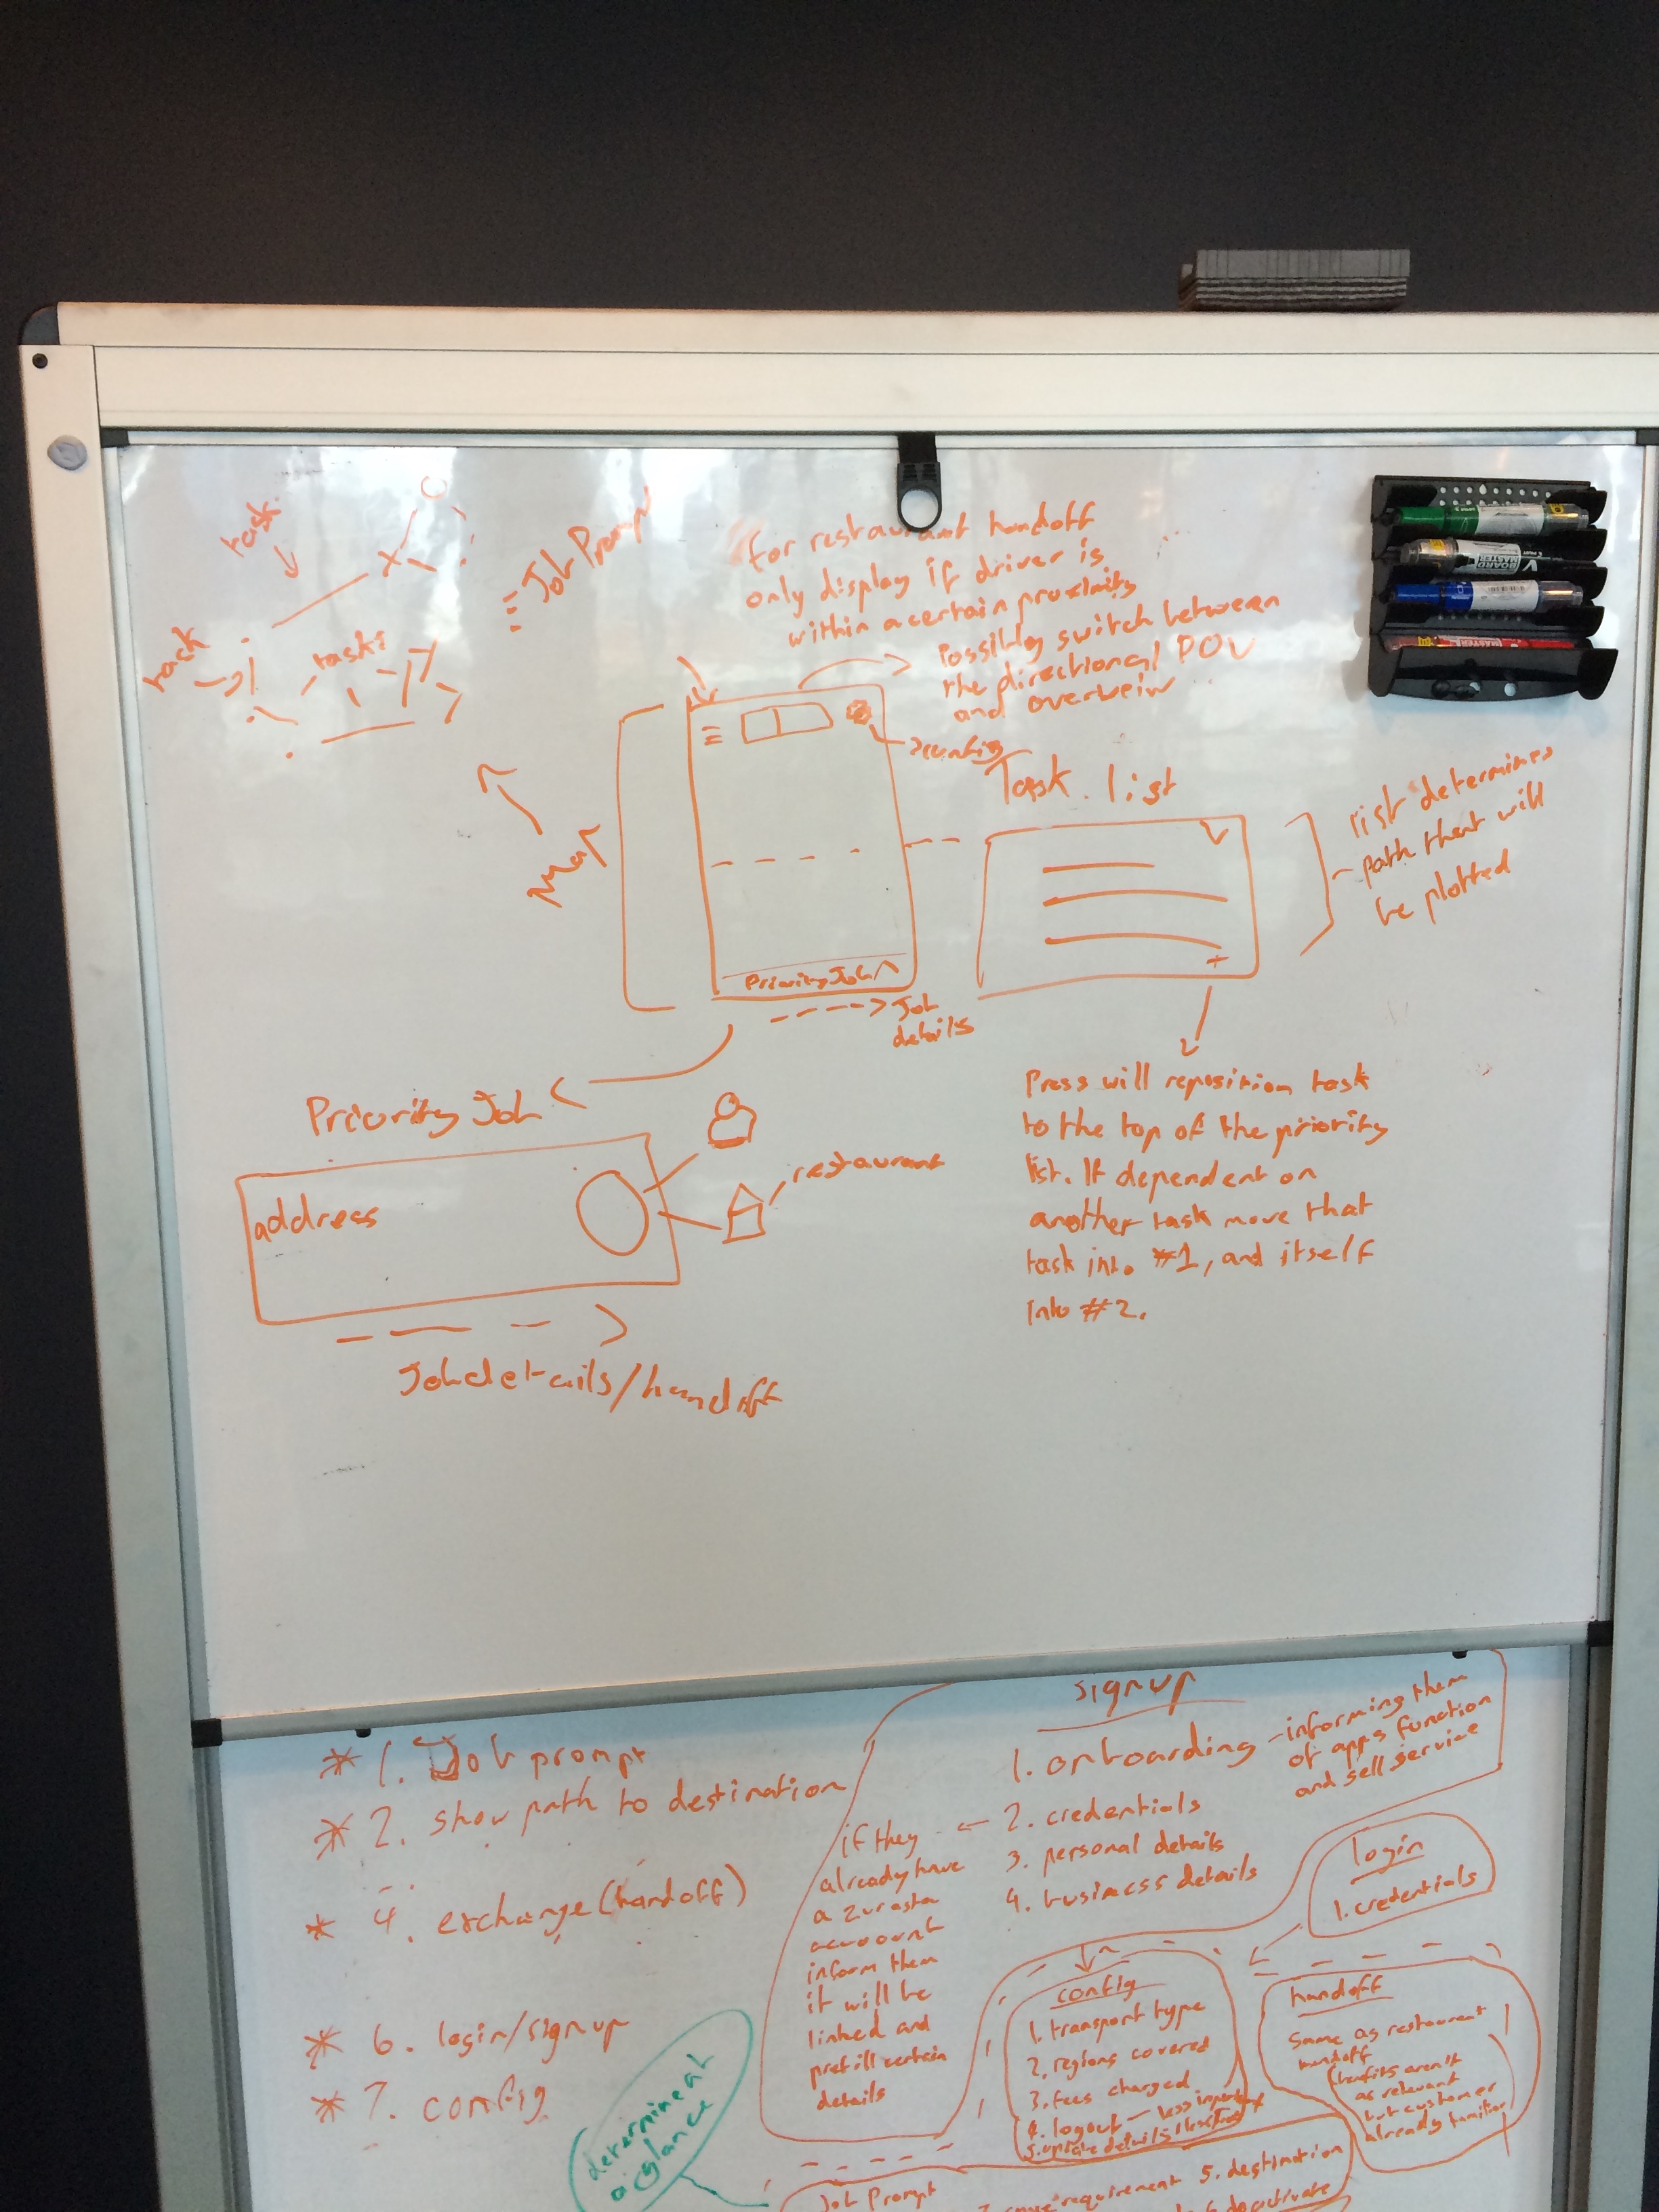 task
task
task
Job Prompt
for restaurant handoff
only display if driver is
within a certain proximity
Possibly switch between
the directional POV
and overveiw
config
Map
Priority Job
Job
details
Task list
list determines
path that will
be plotted
Press will reposition task
to the top of the priority
list. If dependent on
another task move that
task into #1, and itself
into #2.
Priority Job
address
restaurant
Job details/handoff
* 1. Job prompt
* 2. show path to destination
* 4. exchange (handoff)
* 6. login/signup
* 7. config
signup
1. onboarding - informing them
of apps function
and sell service
2. credentials
3. personal details
4. business details
if they
already have
a zurasta
account
inform them
it will be
linked and
prefill certain
details
login
1. credentials
config
1. transport type
2. regions covered
3. fees charged
4. logout - less important
5. update details
handoff
same as restaurant
handoff
benefits aren't
as relevant
but customer
already familiar
determine at
a glance
Job Prompt
requirement 5. destination